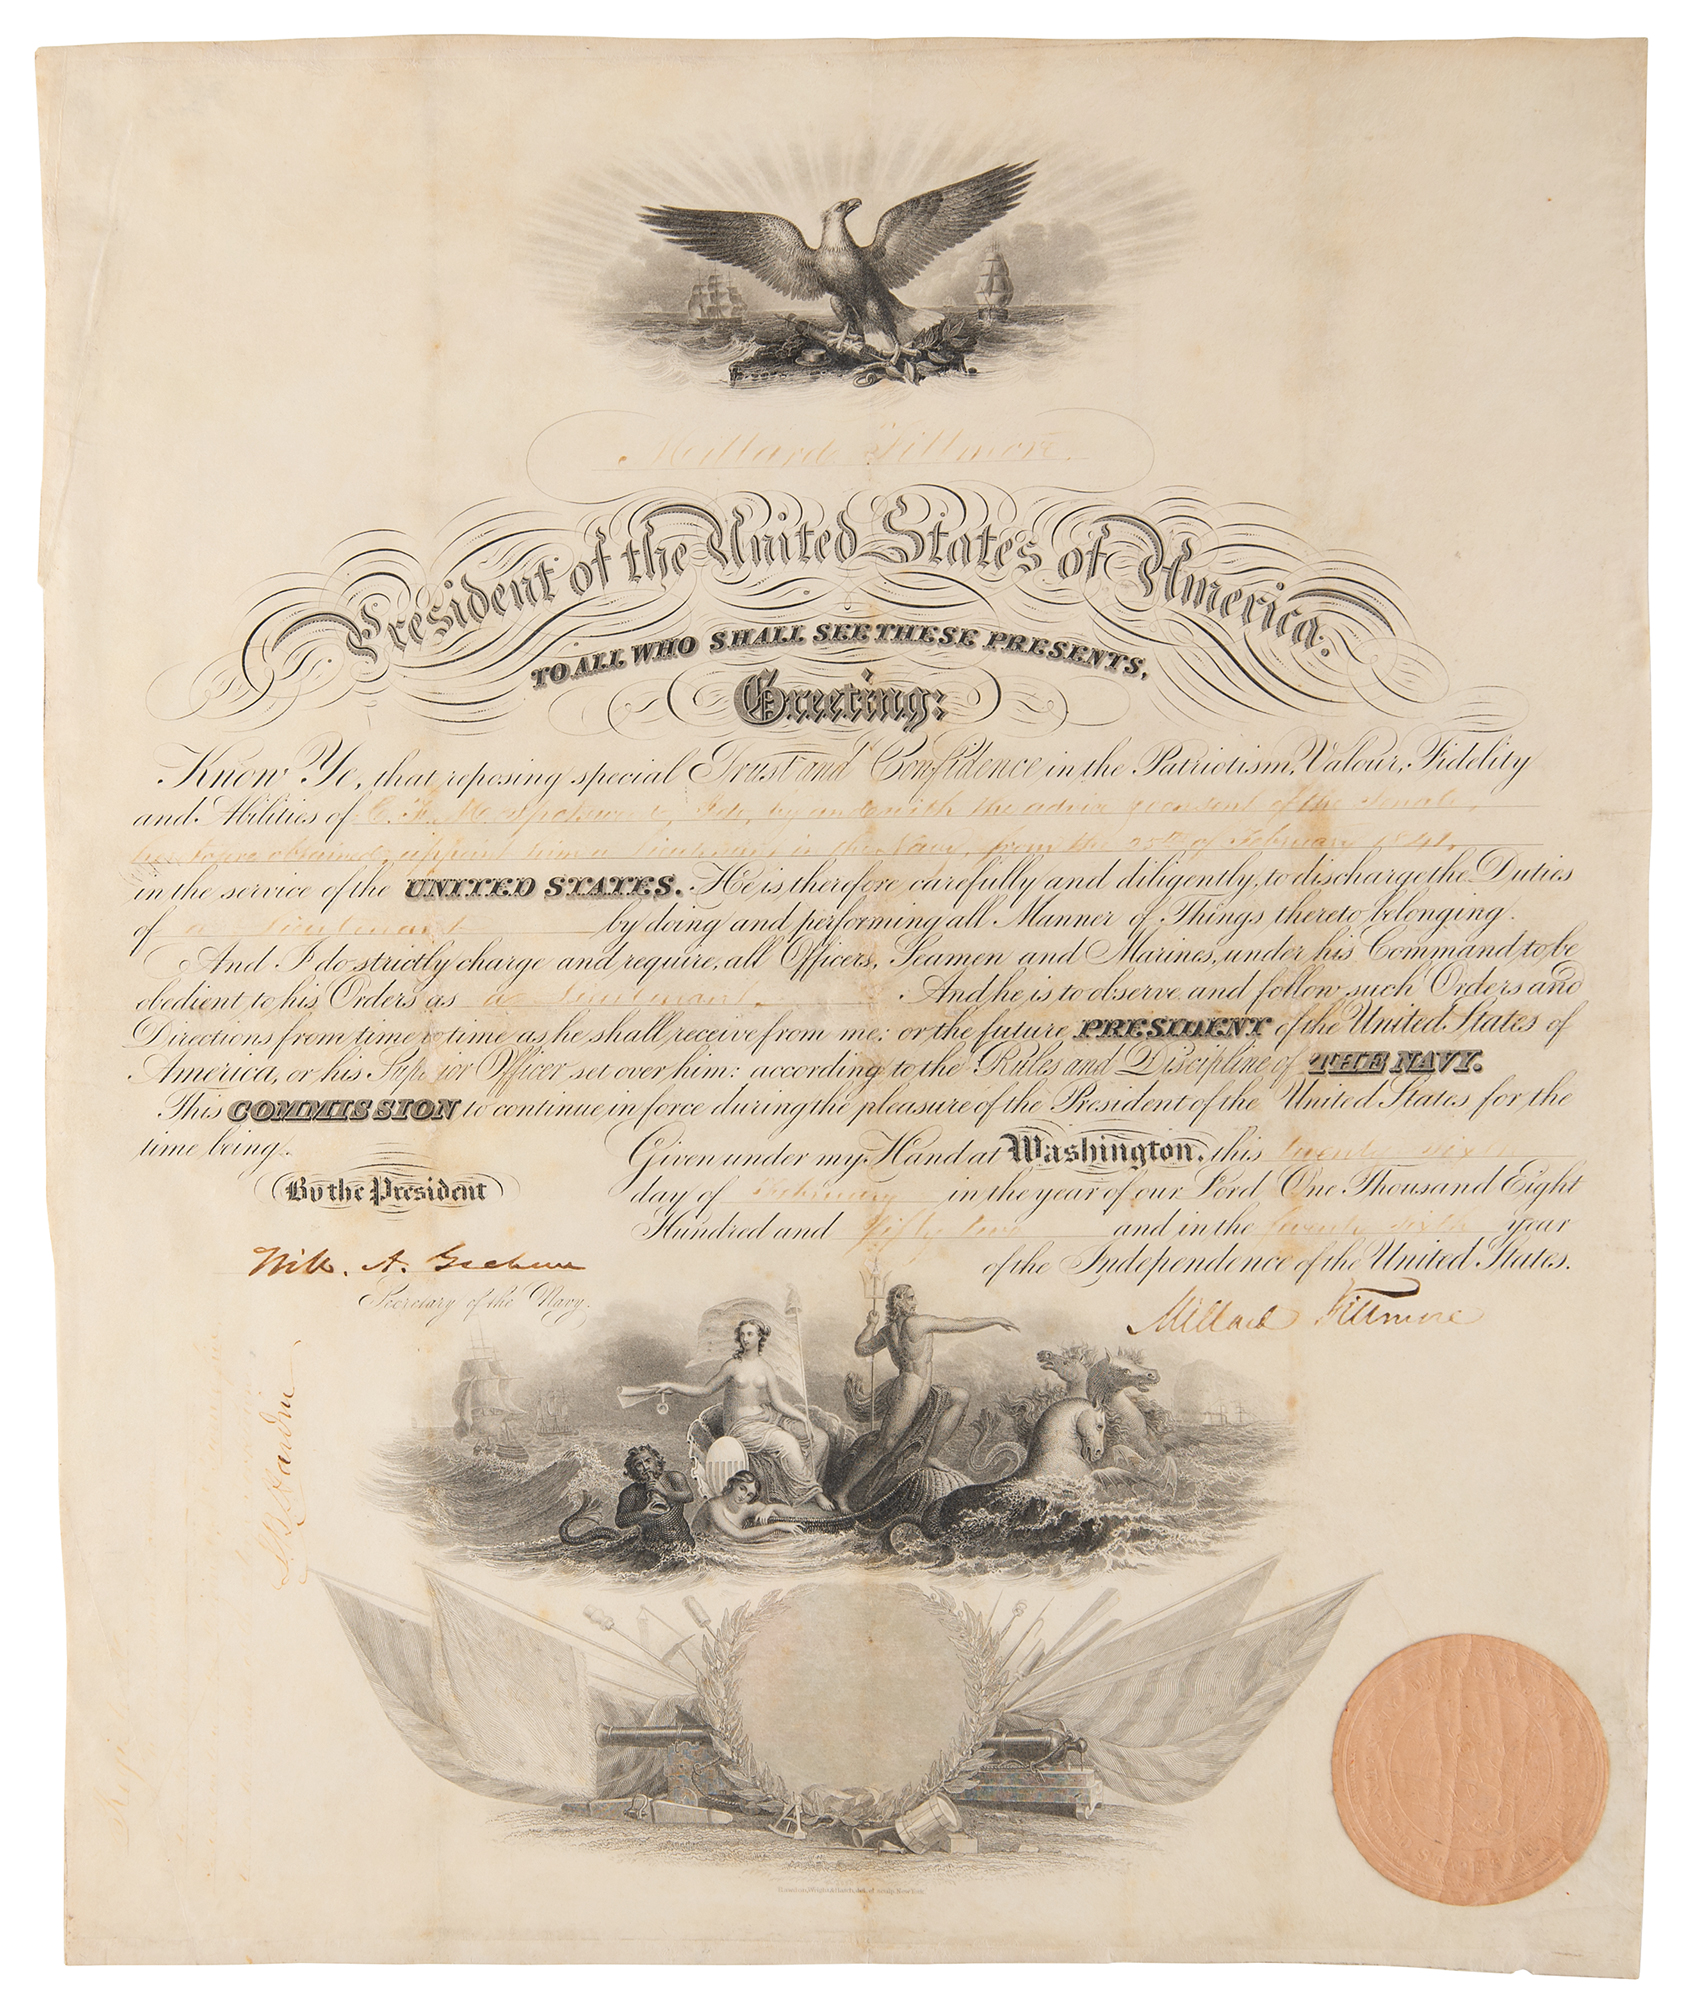 Millard Fillmore.
President of the United States of America.
TO ALL WHO SHALL SEE THESE PRESENTS,
Greeting:
Know Ye, that reposing special Trust and Confidence in the Patriotism, Valour, Fidelity
and Abilities of C. F. M. Spotswood, I do, by and with the advice & consent of the Senate,
obtained, appoint him a Lieutenant in the Navy, from the 25th of February 1841,
in the service of the UNITED STATES. He is therefore carefully and diligently, to discharge the Duties
of a Lieutenant by doing and performing all Manner of Things thereto belonging.
And I do strictly charge and require, all Officers, Seamen and Marines, under his Command to be
obedient to his Orders as a Lieutenant. And he is to observe and follow such Orders and
Directions from time to time as he shall receive from me: or the future PRESIDENT of the United States of
America, or his Superior Officer set over him: according to the Rules and Discipline of THE NAVY.
This COMMISSION to continue in force during the pleasure of the President of the United States for the
time being.
Given under my Hand at Washington, this twenty sixth
By the President
day of February in the year of our Lord One Thousand Eight
Hundred and fifty two and in the seventy sixth year
of the Independence of the United States.
Will. A. Graham
Secretary of the Navy.
Millard Fillmore